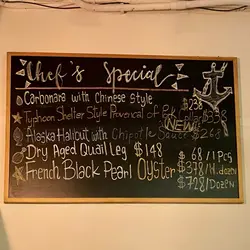 Chef's Special
Carbonara with Chinese Style $238
Typhoon Shelter Style Provencal of Pork Collar $338
NEW!
Alaska Halibut with Chipotle Sauce $268
Dry Aged Quail Leg $148
French Black Pearl Oyster $68/1pcs
$378/H.dozen
$728/Dozen